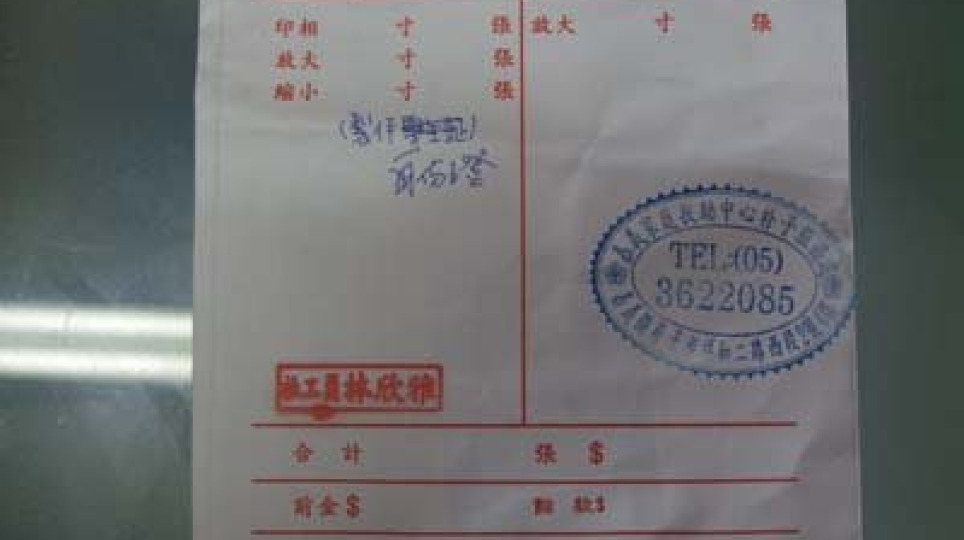 印相 寸 張 放大 寸 張
放大 寸 張
縮小 寸 張
(製作學生証)
身份證
TEL:(05)
3622085
社工員林欣雅
合計 張 $
前金$ 餘款$